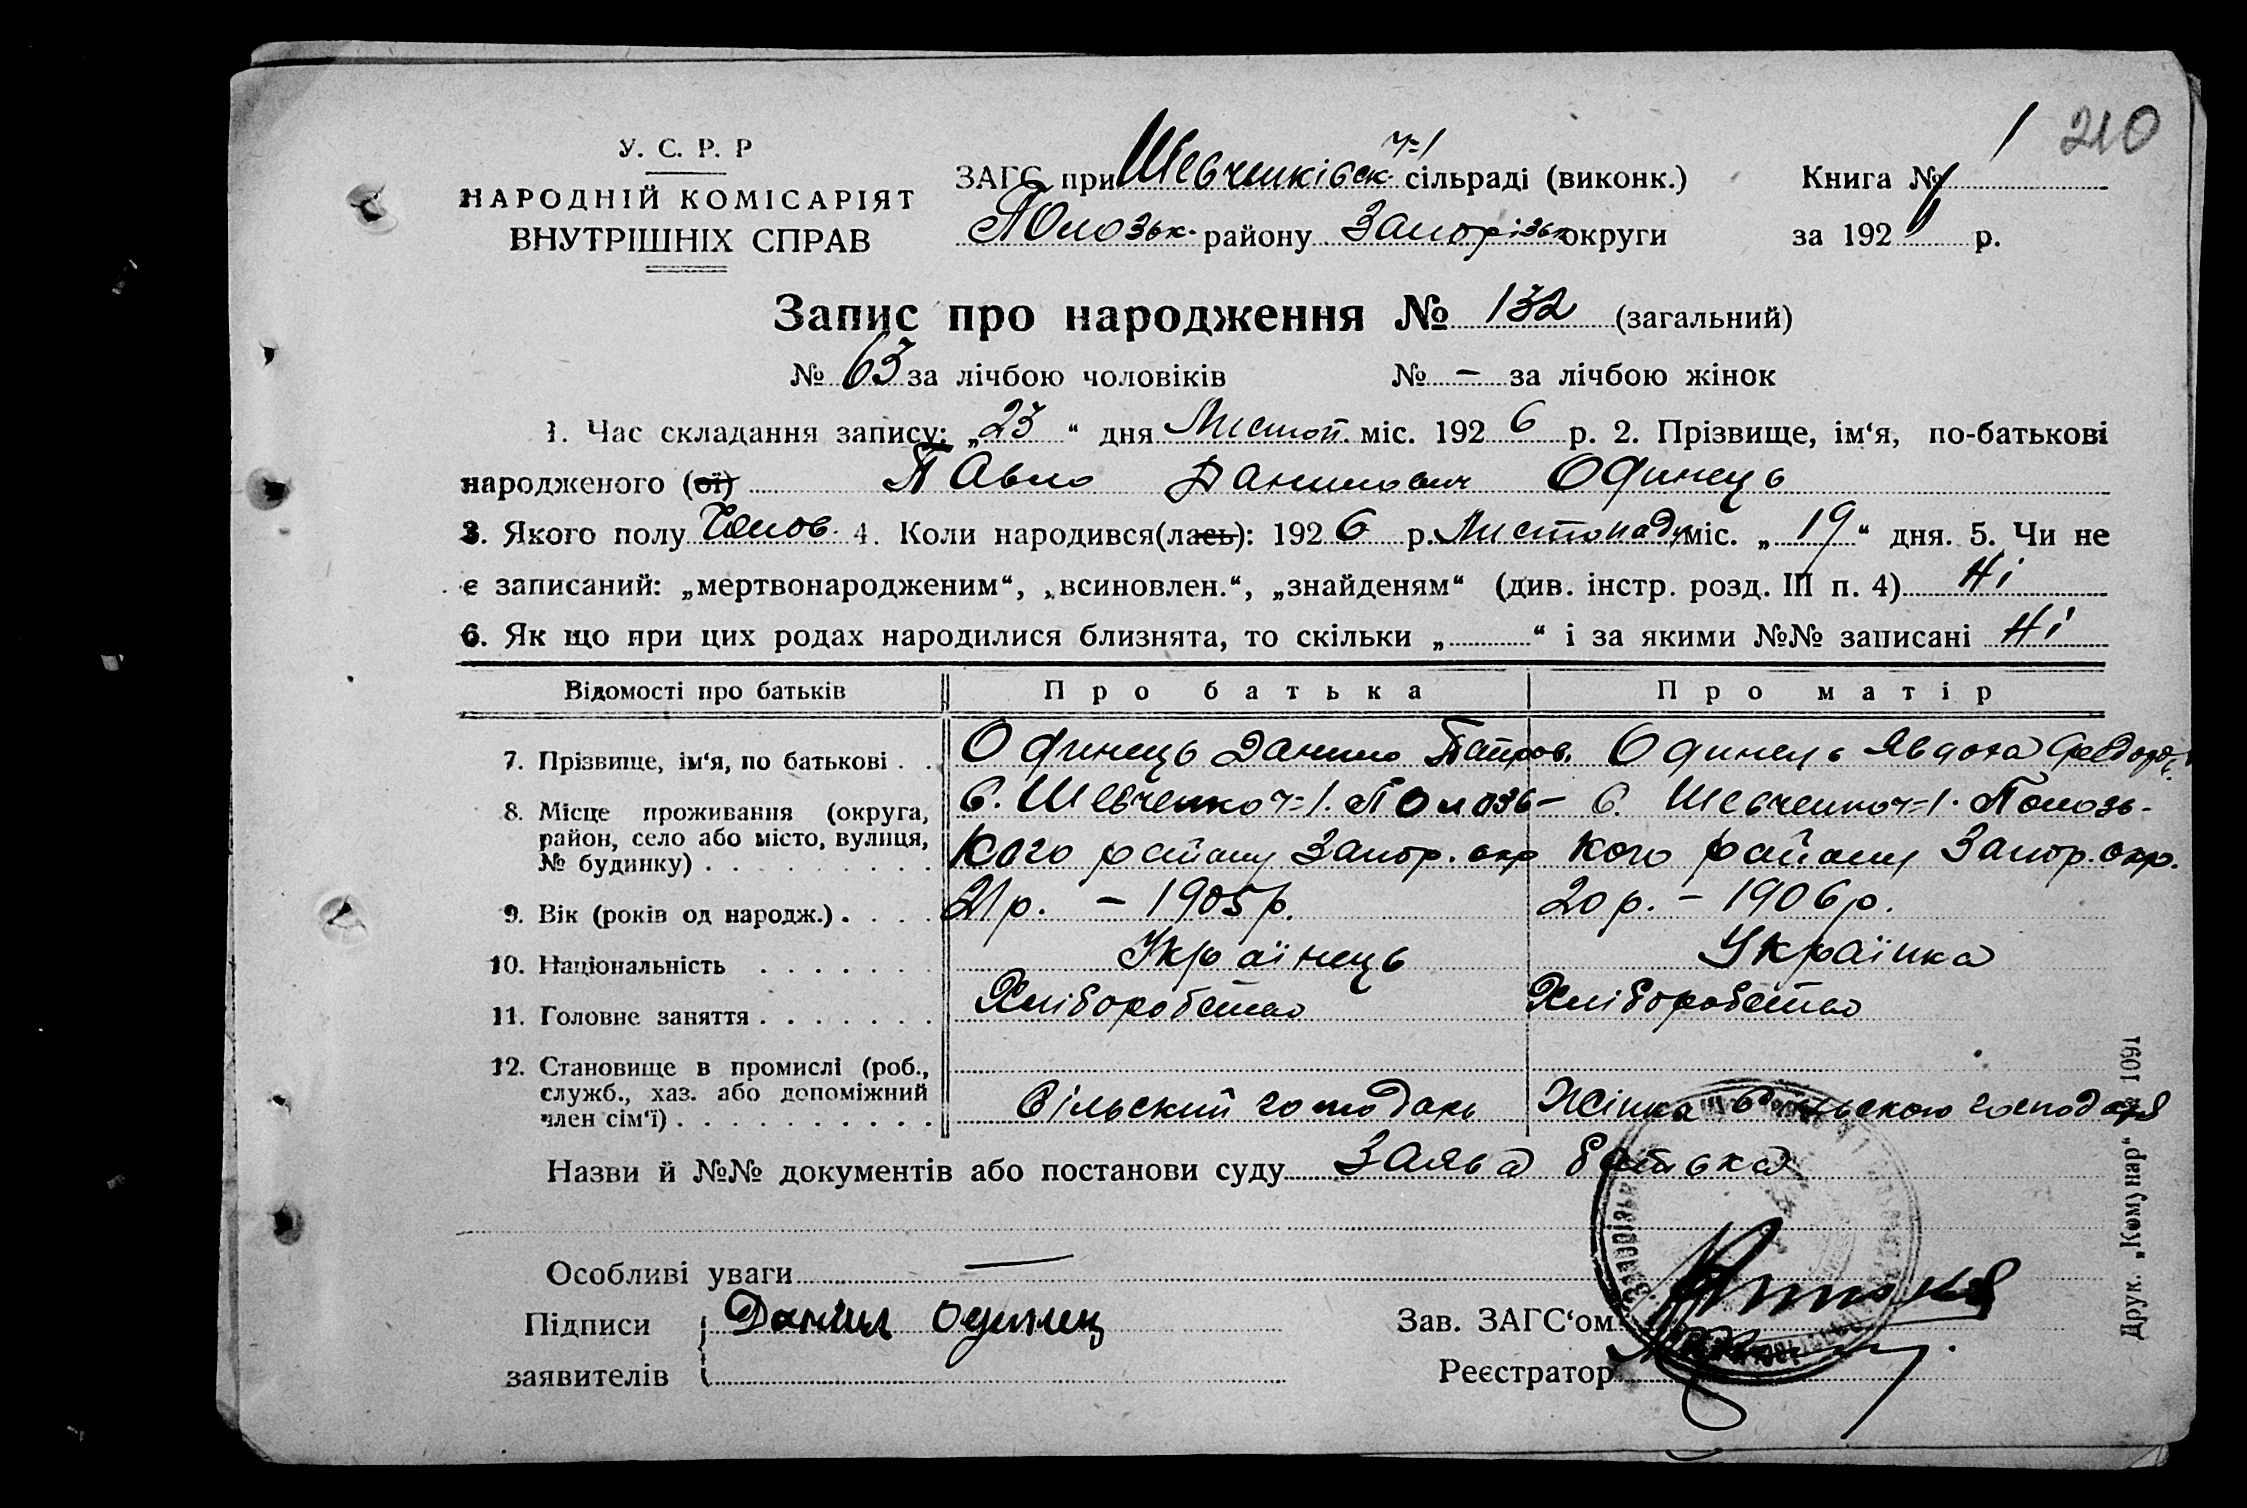 210
У. С. Р. Р
НАРОДНІЙ КОМІСАРІЯТ
ВНУТРІШНІХ СПРАВ
ЗАГС при Шевченківськ. ч=1 сільраді (виконк.) Книга № 1
Полозьк. району Запорізьк округи за 192 р.
Запис про народження № 132 (загальний)
№ 63 за лічбою чоловіків № — за лічбою жінок
1. Час складання запису: „23“ дня Листоп. міс. 1926 р. 2. Прізвище, ім‘я, по-батькові
народженого (ої) Павло Данилович Одинець
3. Якого полу Чолов. 4. Коли народився(лась): 1926 р. Листопаду міс. „19“ дня. 5. Чи не
є записаний: „мертвонародженим“, „всиновлен.“, „знайденям“ (див. інстр. розд. III п. 4) Ні
6. Як що при цих родах народилися близнята, то скільки „ “ і за якими №№ записані Ні
Відомості про батьків Про батька Про матір
7. Прізвище, ім‘я, по батькові . . Одинець Данило Петров. Одинець Явдоха Федоров.
8. Місце проживання (округа, с. Шевченко ч=1. Полозь- с. Шевченко ч=1. Полозь-
район, село або місто, вулиця,
№ будинку) . . . . . . . . . кого району Запор. окр кого району Запор. окр.
9. Вік (років од народж.) . . . . 21 р. – 1905 р. 20 р. – 1906 р.
10. Національність . . . . . . . Українець Українка
11. Головне заняття . . . . . . . Хліборобство Хліборобство
12. Становище в промислі (роб.,
служб., хаз. або допоміжний Сільский господарь Жінка сільського господаря
член сім‘ї) . . . . . . . . . .
Назви й №№ документів або постанови суду Заява батька
Особливі уваги —
Підписи Даніил Одинец Зав. ЗАГС‘ом
заявителів Реєстратор
Друк. „Комунар“ 1091